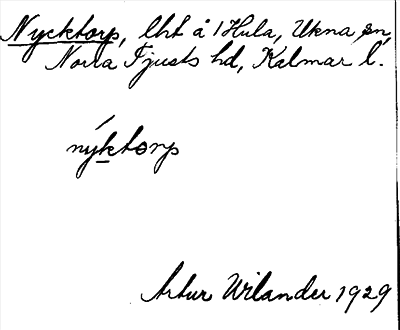 Nycktorp, lht å 1 Hula, Ukna sn,
Norra Tjusts hd, Kalmar l.
nýktorp
Artur Wilander 1929